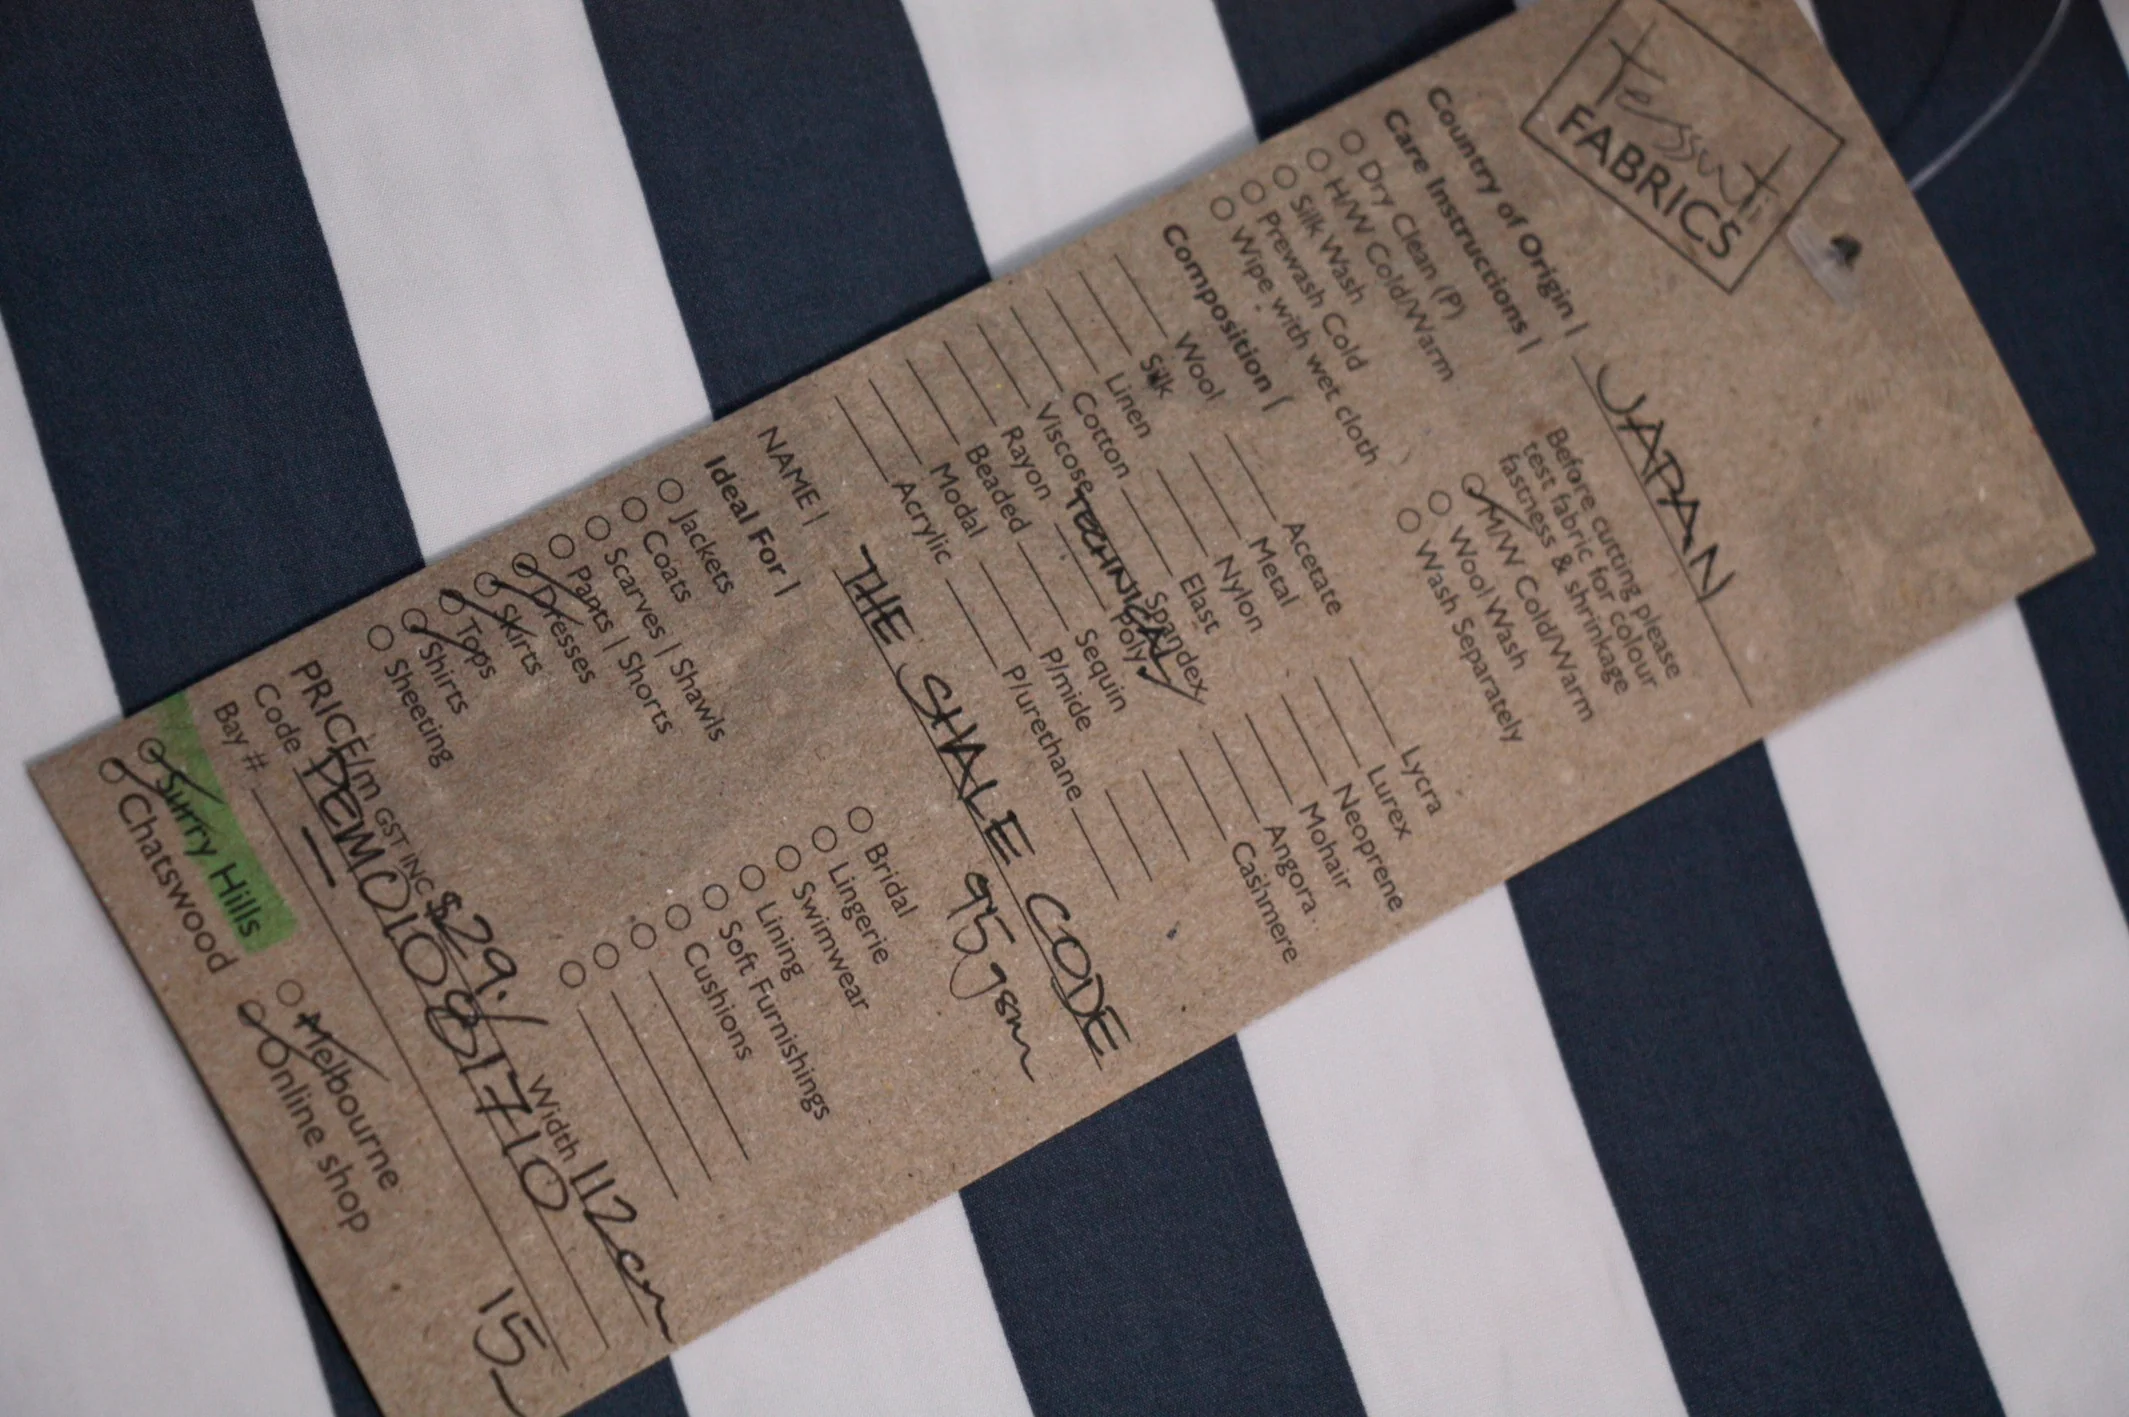 Tessuti
FABRICS
Country of Origin | JAPAN
Care Instructions |
Before cutting please
test fabric for colour
fastness & shrinkage
Dry Clean (P)
M/W Cold/Warm
H/W Cold/Warm
Wool Wash
Silk Wash
Wash Separately
Prewash Cold
Wipe with wet cloth
Composition |
Wool Acetate Lycra
Silk Metal Lurex
Linen Nylon Neoprene
Cotton Elast Mohair
Viscose Spandex Angora
TECHNICAL
Rayon Poly Cashmere
Beaded Sequin
Modal P/mide
Acrylic P/urethane
NAME | THE SHALE CODE
95gsm
Ideal For |
Jackets Bridal
Coats Lingerie
Scarves | Shawls Swimwear
Pants | Shorts Lining
Dresses Soft Furnishings
Skirts Cushions
Tops
Shirts
Sheeting
PRICE/m GST INC $29./ Width 112cm
Code
Bay #
15
Surry Hills Melbourne
Chatswood Online shop